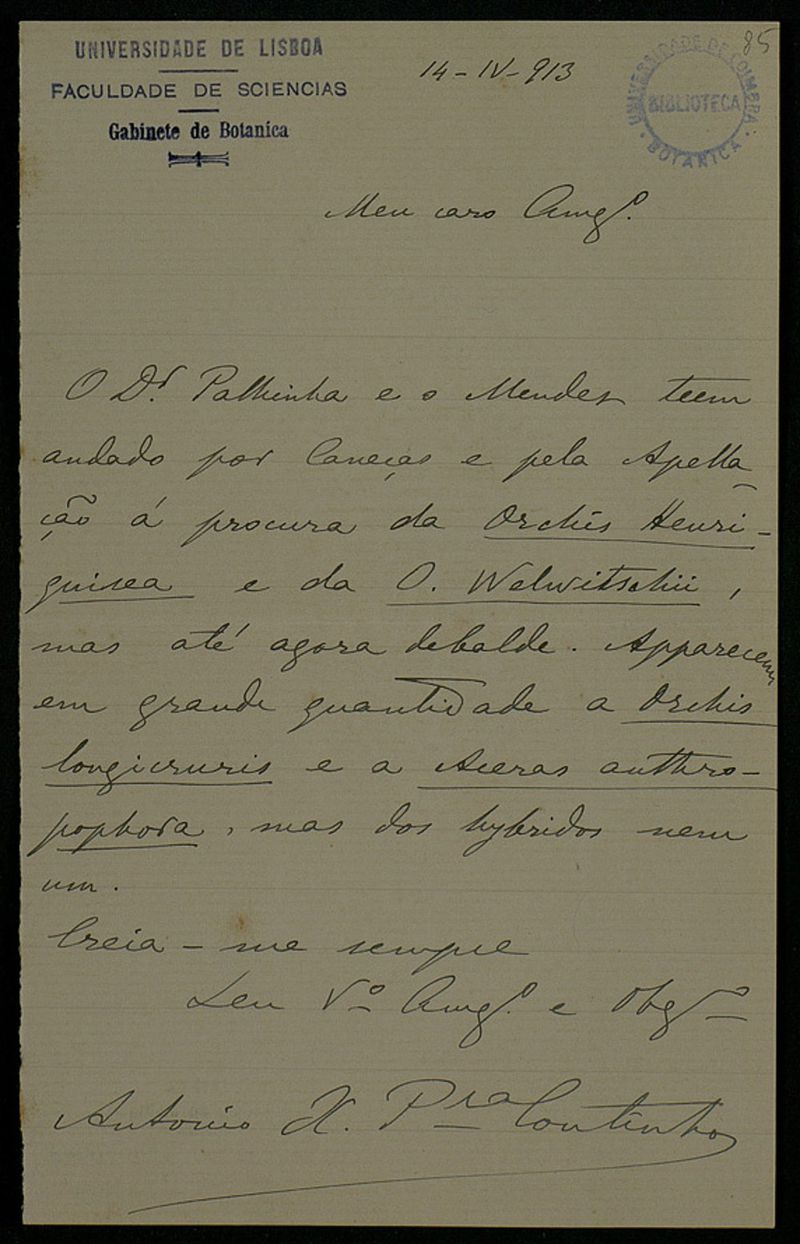 85
UNIVERSIDADE DE LISBOA
FACULDADE DE SCIENCIAS
Gabinete de Botanica
14-IV-913
UNIVERSIDADE DE COIMBRA
BIBLIOTECA
BOTANICA
Meu caro Amgº.
O Dr. Palhinha e o Mendes teem
andado por Caneças e pela Apella-
ção á procura da Orchis Henri-
quisea e da O. Welwitschii,
mas até agora debalde. Apparecem
em grande quantidade a Orchis
longicruris e a Aceras anthro-
pophora, mas dos hybridos nem
um.
Creia-me sempre
Seu Vº Amgº. e Obgº
Antonio X. Pra Coutinho